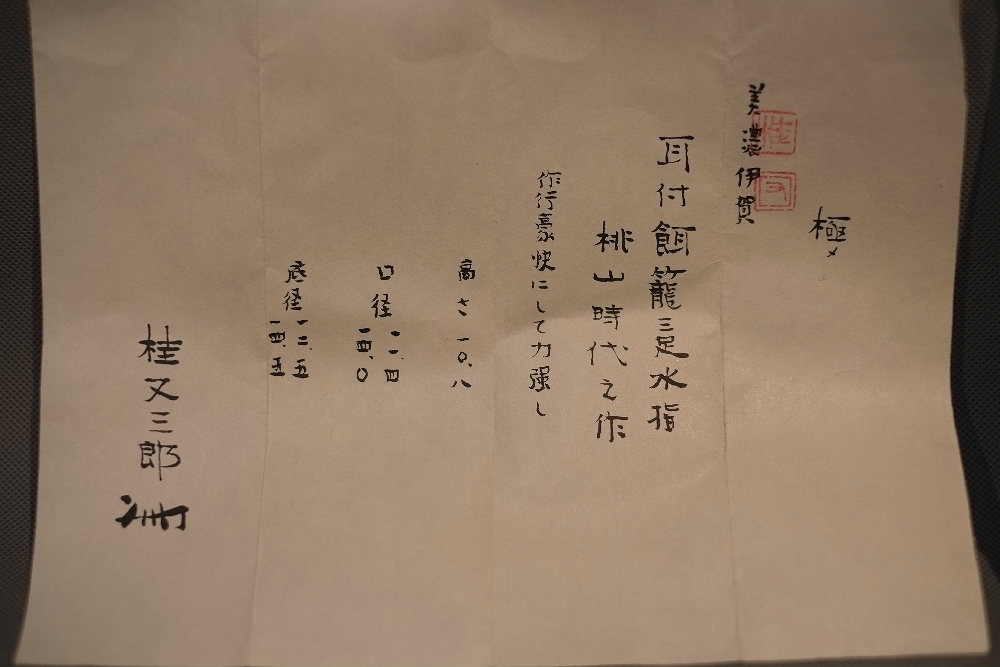 極メ
美濃伊賀
耳付餌籠三足水指
桃山時代之作
作行豪快にして力強し
高さ 一〇、八
口径 一一、四
一四、〇
底径 一二、五
一四、五
桂又三郎